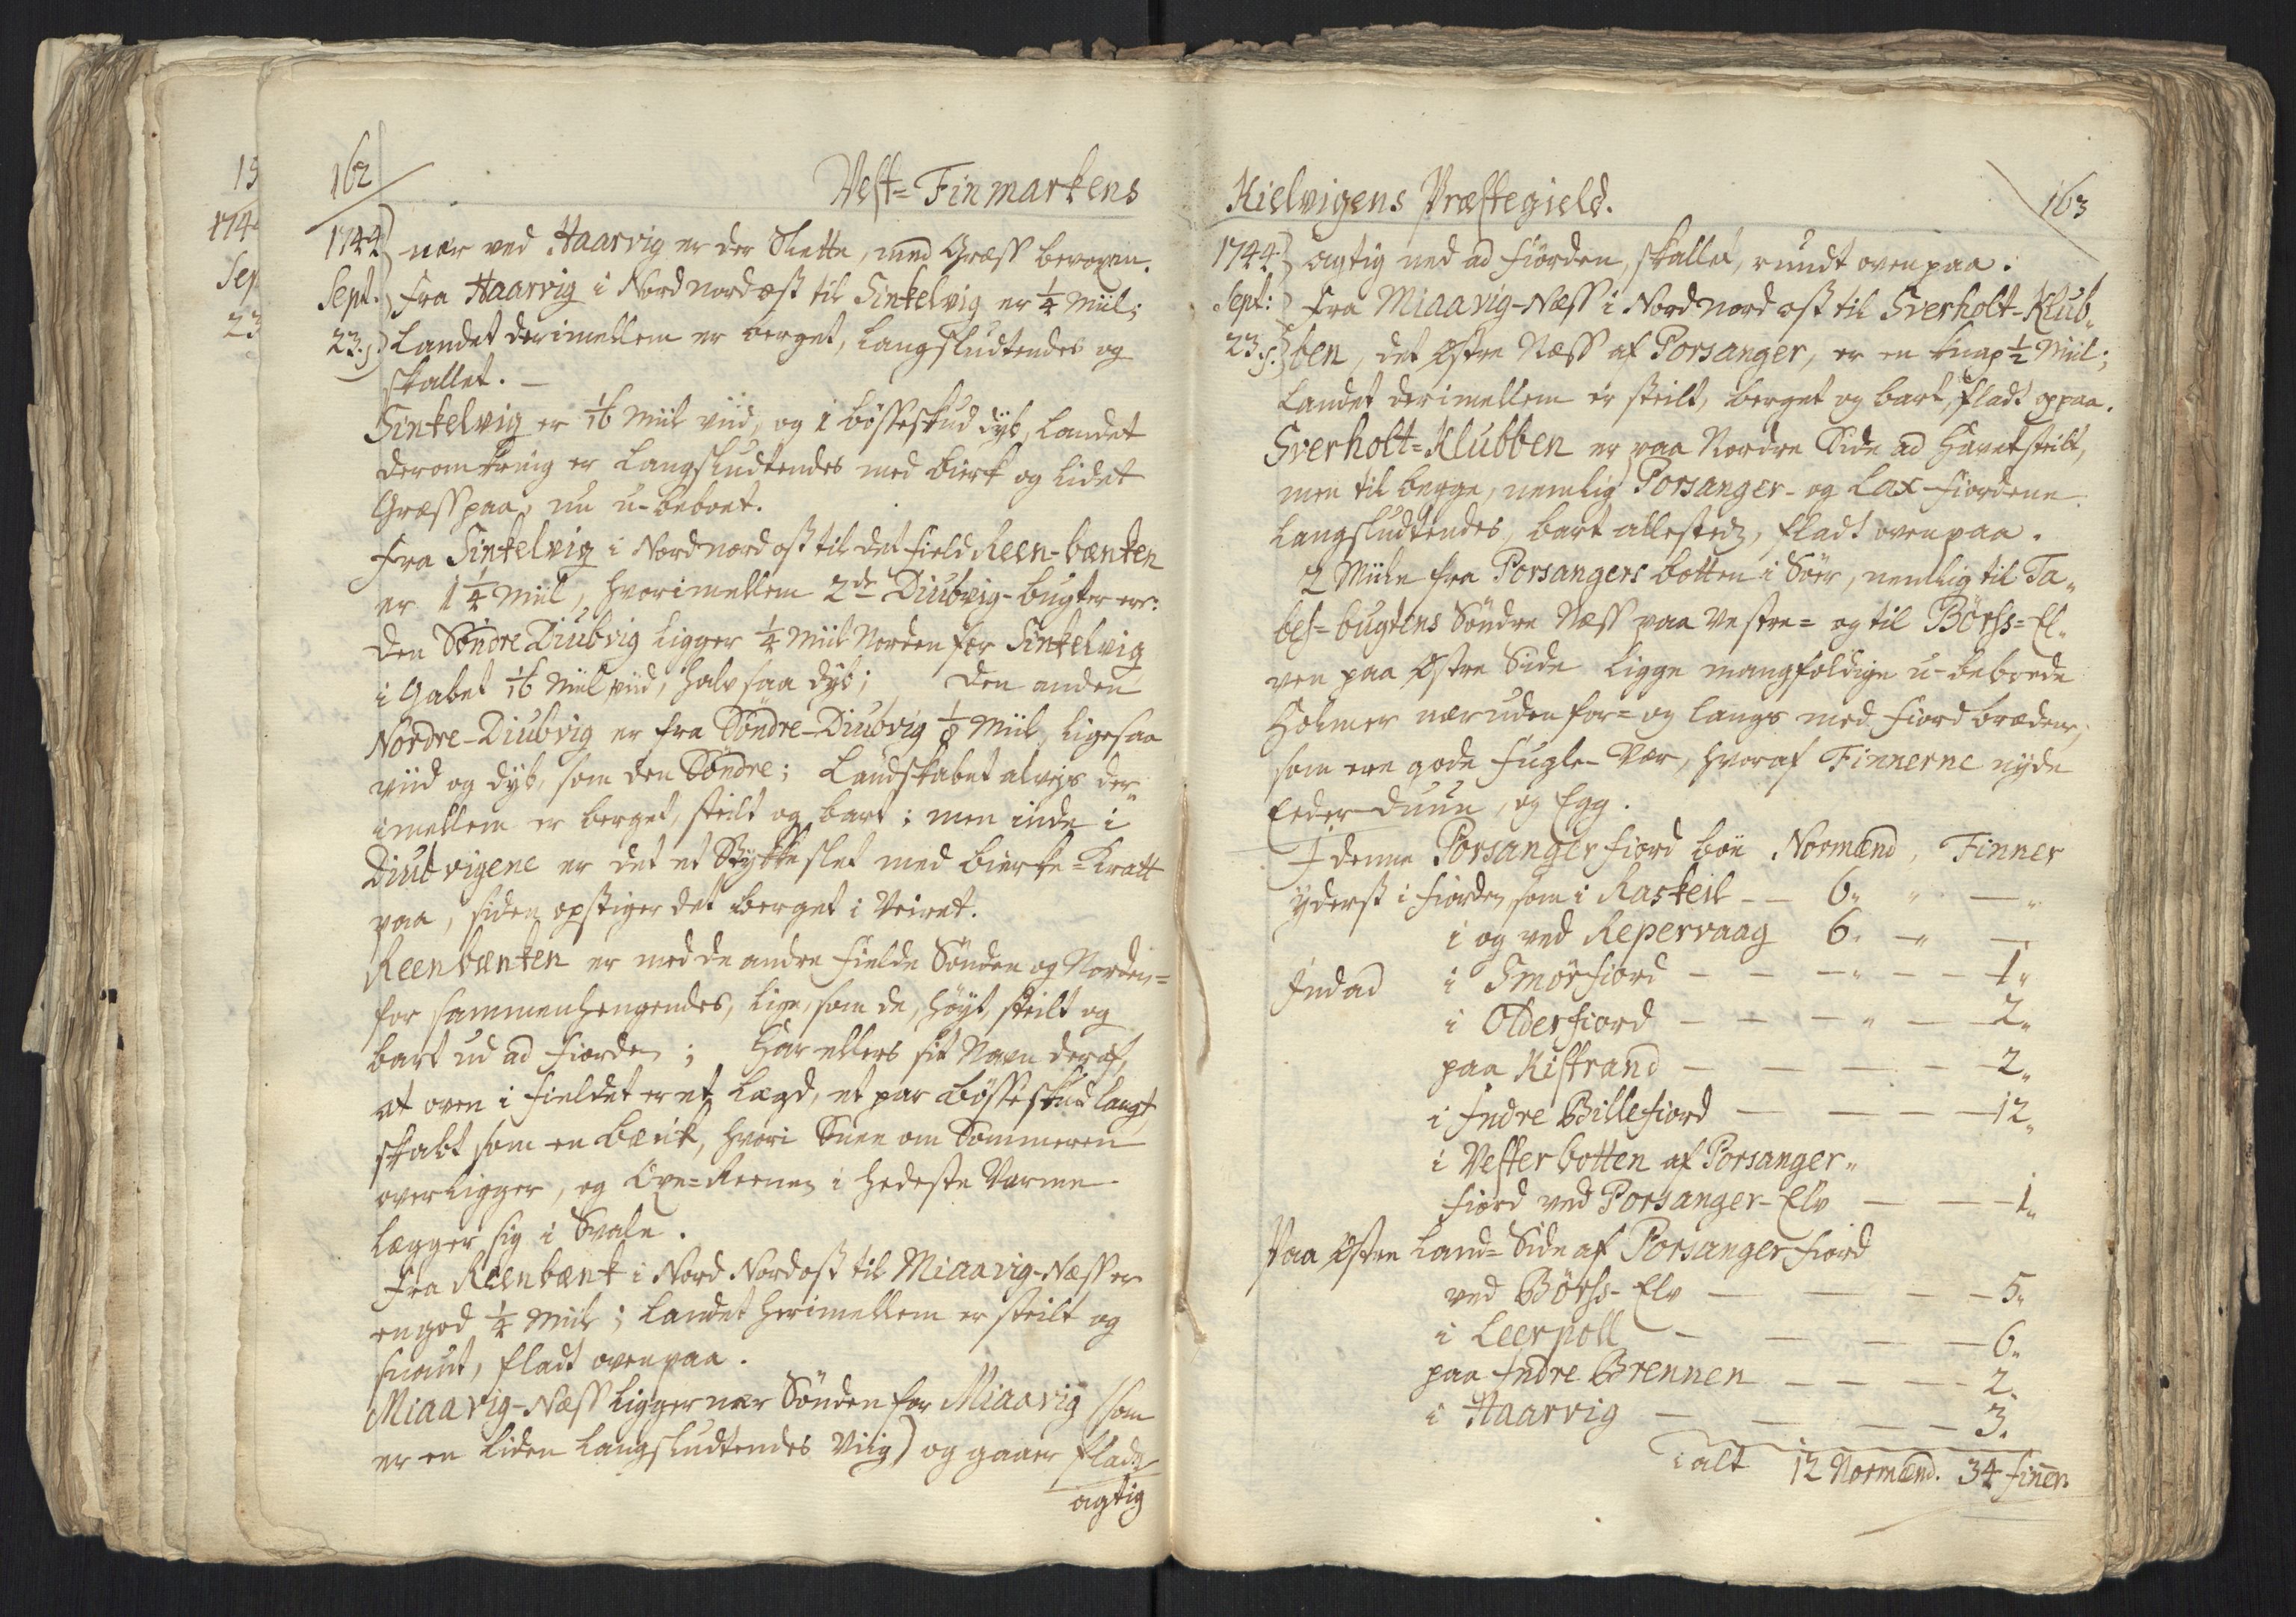 13
174
Sep
23
162
Vest=Finmarkens
1744 nær ved Haarvig er der Slette, med Græss bevoxen.
Sept. Fra Haarvig i Nordnordost til Sinkelvig er 1/4 Miil;
23. Landet derimellem er berget, langsludtendes og
skallet. —
Sinkelvig er 1/16 Miil viid, og 1 bösseskud dyb, Landet
deromkring er langsludtendes med bierk og lidet
Græss paa, nu u-beboet.
Fra Sinkelvig i Nordnordost til det field Reen-bænken
er 1 1/4 Miil, hvorimellem 2de Diubvig-bugter ere:
den Söndre Diubvig ligger 1/4 Miil Norden for Sinkelvig
i Gabet 1/16 Miil viid, halv saa dyb; den anden
Nordre-Diubvig er fra Söndre-Diubvig 1/8 Miil, ligesaa
viid og dyb, som den Söndre; Landskabet der
imellem er berget, steilt og bart; men inde i
Diubvigene er det et Stykke slet med bierke=Kratt
paa, siden opstiger det berget i Veiret.
Reenbænken er med de andre fielde Sönden og Norden=
for sammenhengendes, lige som de, höyt, steilt og
bart ud ad fiorden; har ellers sit Navn deraf,
at oven i fieldet er et Lægd, et par bösseskud langt,
skabt som en bænk, hvori Snee om Sommeren
overligger, og Reenen i hedeste Varme
lægger sig i Svale.
Fra Reenbænk i Nord Nordost til Miaavig-Næss er
en god 1/4 Miil; Landet herimellem er steilt og
snaut, fladt ovenpaa.
Miaavig-Næss ligger nær Sönden for Miaavig (som
er en liden langsludtendes Viig) og gaaer flade
agtig
Kielvigens Præstegield.
163
1744 agtig ned ad fiorden, skallet, rundt ovenpaa.
Sept: Fra Miaavig-Næss i Nordnordost til Sverholt-Klub„
23. ben, det Østre Næss af Porsanger, er en knap 1/2 Miil;
Landet derimellem er steilt, berget og bart, fladt oppaa.
Sverholt=Klubben er paa Nordre Side ad Havet steilt,
men til begge, nemlig Porsanger- og Lax-fiordene
langsludtendes, bart allested, fladt ovenpaa.
2 Miile fra Porsangers botten i Söer, nemlig til Ta„
bes=bugtens Söndre Næss paa Vestre= og til Börss=El„
ven paa Østre Side ligge mangfoldige u-beboede
Holmer nær uden for= og langs med fiord brædene,
som ere gode fugle-Vær, hvoraf Finnerne nyde
Eeder-Duun, og Egg.
I denne Porsanger fiord boe Normænd, Finner
yderst i fiorden som i Raskeil — — 6„ „ — „
i og ved Repervaag 6. —„ —
Ind ad i Smörfiord — — — „ — — 1„
i Olderfiord — — — „ — 2„
paa Kistrand — — — — — 2„
i Indre Billefiord — — — — 12„
i Vesterbotten af Porsanger„
fiord ved Porsanger-Elv — — — 1„
Paa Østre Land=Side af Porsanger fiord
ved Börss-Elv — — — — 5„
i Leerpoll — — — — 6„
paa Indre Brennen — — — — 2.
i Haarvig — — — — 3.
i alt 12 Normænd. 34 finer.